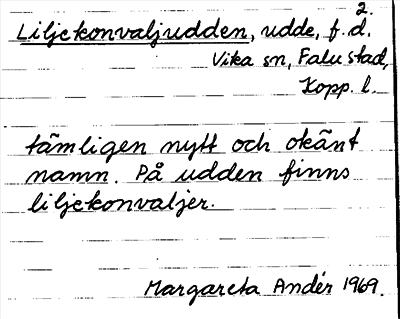 2.
Liljekonvaljudden, udde, f.d.
Vika sn, Falu stad,
Kopp. l.
tämligen nytt och okänt
namn. På udden finns
liljekonvaljer.
Margareta Andér 1969.